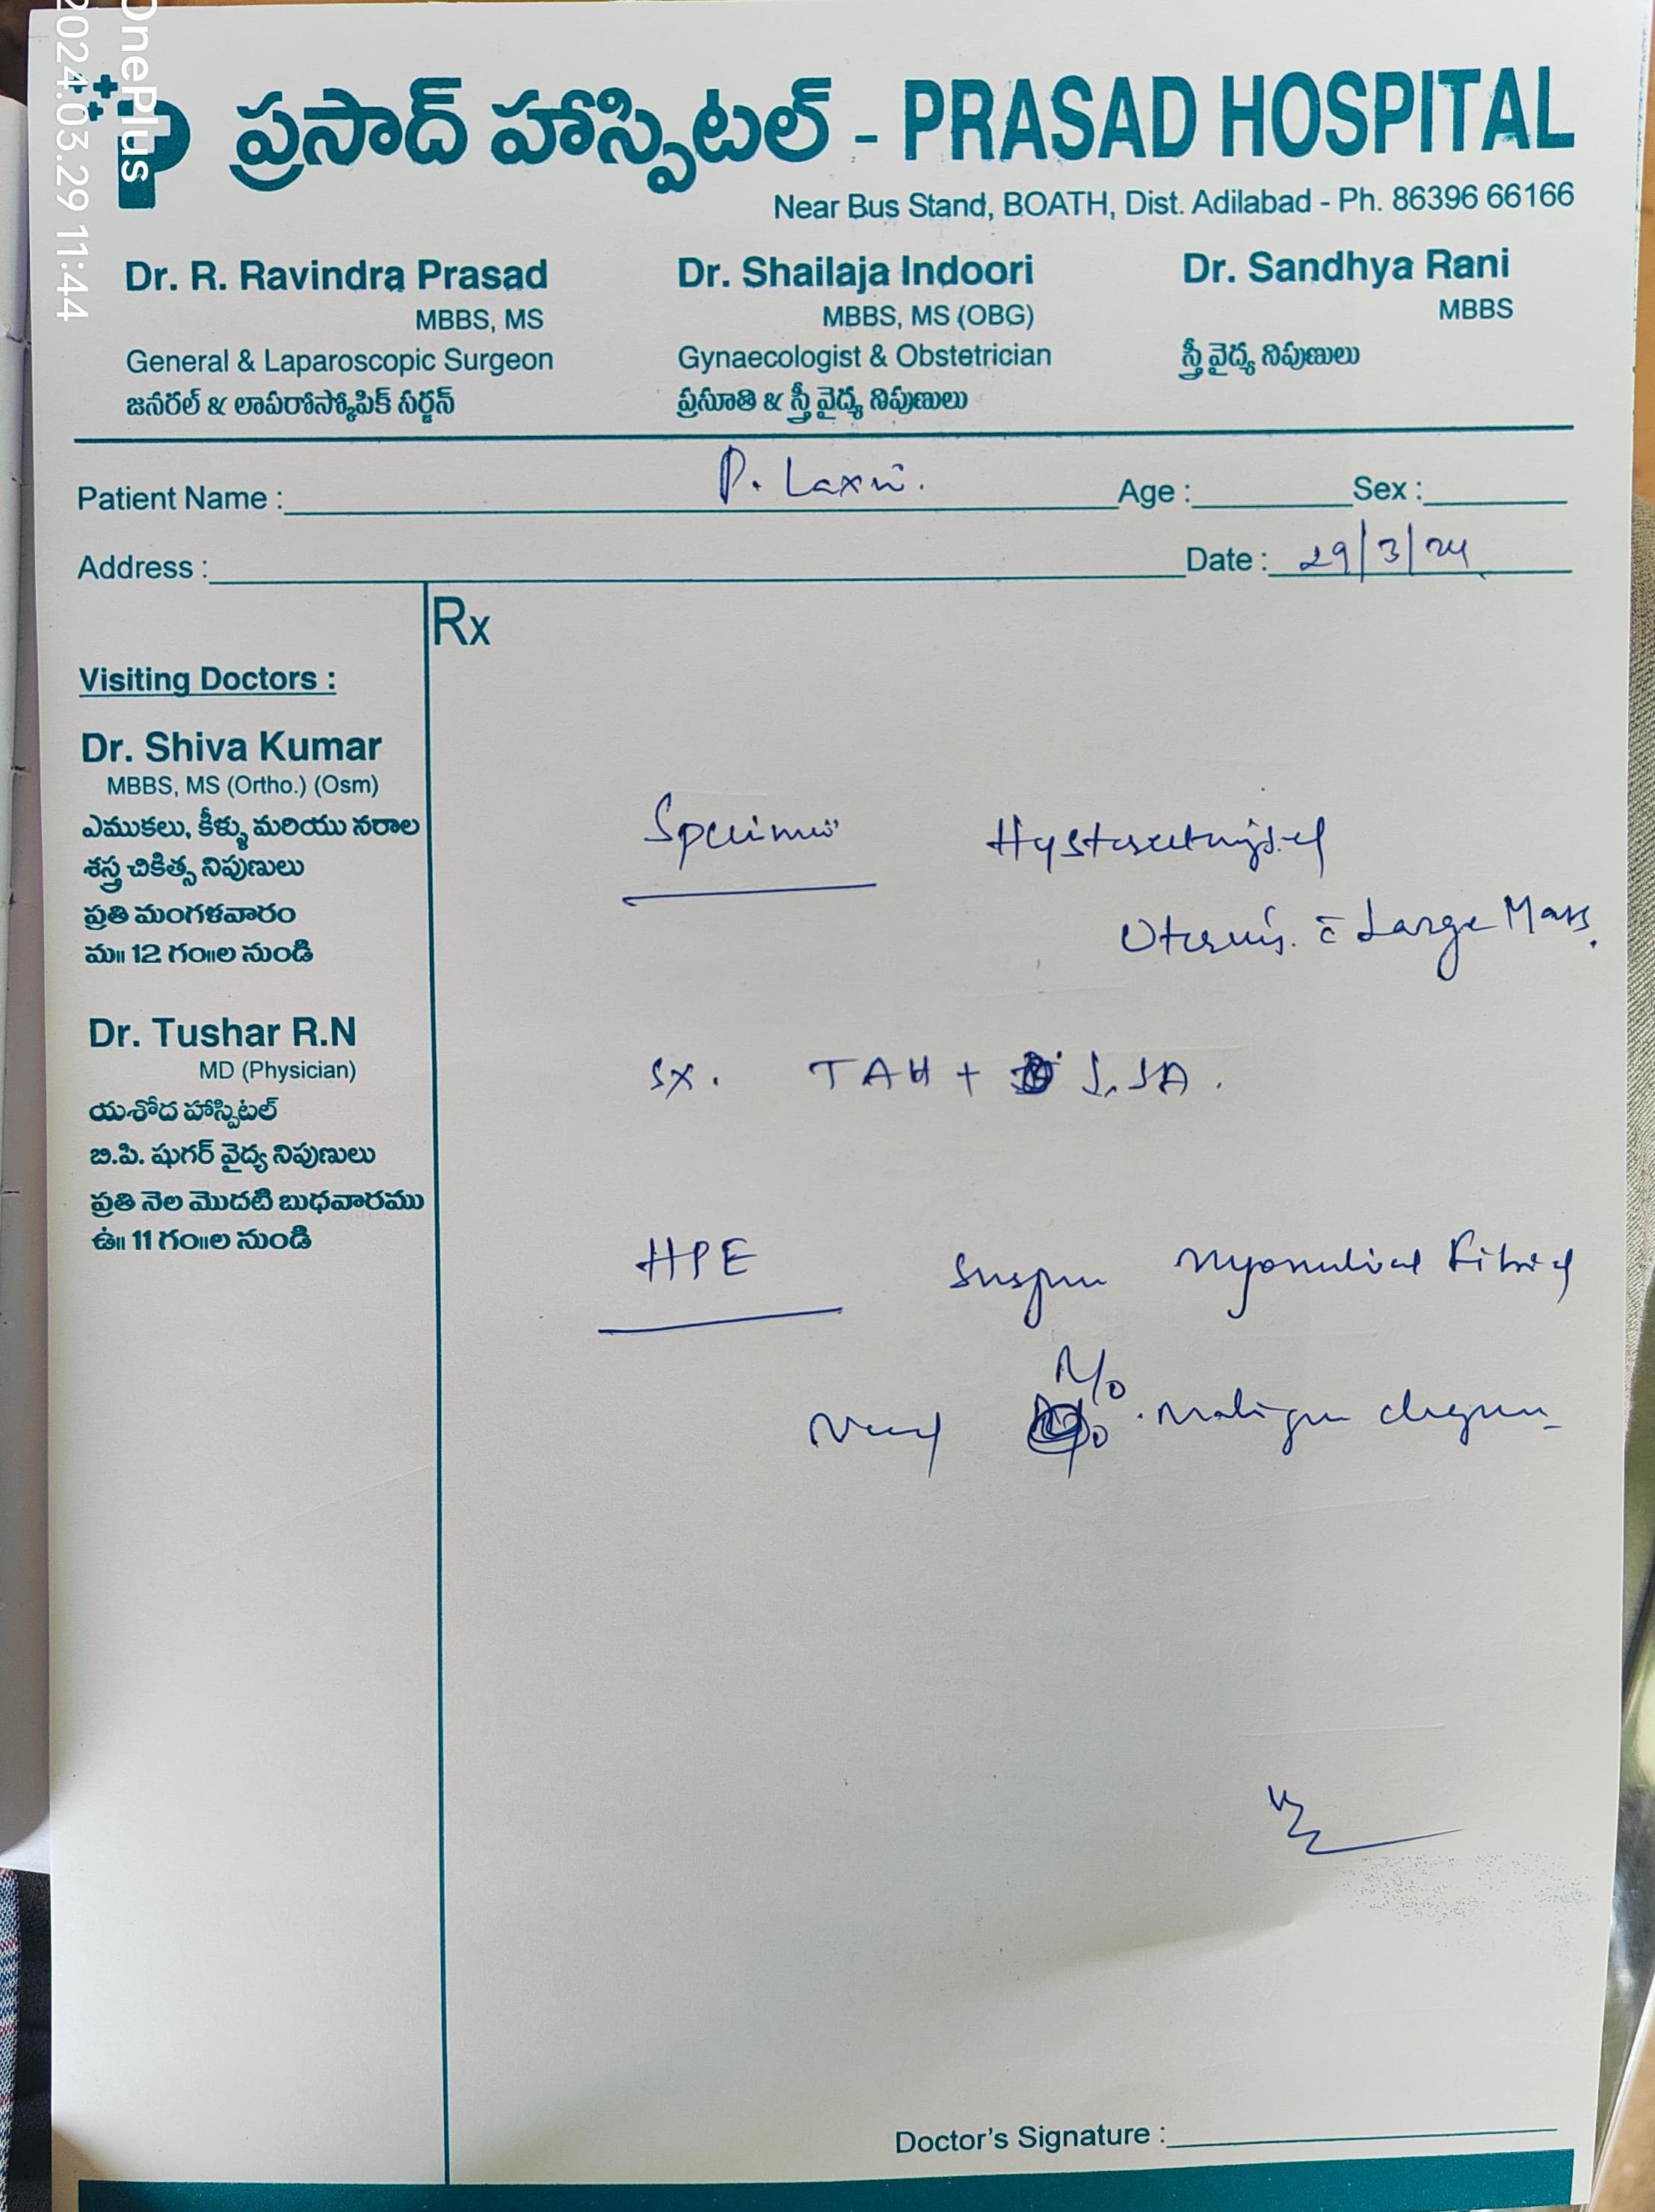 OnePlus
2024.03.29 11:44
ప్రసాద్ హాస్పిటల్ - PRASAD HOSPITAL
Near Bus Stand, BOATH, Dist. Adilabad - Ph. 86396 66166
Dr. R. Ravindra Prasad
MBBS, MS
General & Laparoscopic Surgeon
జనరల్ & లాపరోస్కోపిక్ సర్జన్
Dr. Shailaja Indoori
MBBS, MS (OBG)
Gynaecologist & Obstetrician
ప్రసూతి & స్త్రీ వైద్య నిపుణులు
Dr. Sandhya Rani
MBBS
స్త్రీ వైద్య నిపుణులు
Patient Name : P. Laxmi. Age : Sex :
Address : Date : 29/3/24
Rx
Visiting Doctors :
Dr. Shiva Kumar
MBBS, MS (Ortho.) (Osm)
ఎముకలు, కీళ్ళు మరియు నరాల
శస్త్ర చికిత్స నిపుణులు
ప్రతి మంగళవారం
మ॥ 12 గం॥ల నుండి
Dr. Tushar R.N
MD (Physician)
యశోద హాస్పిటల్
బి.పి. షుగర్ వైద్య నిపుణులు
ప్రతి నెల మొదటి బుధవారము
ఉ॥ 11 గం॥ల నుండి
Specimen
Uterus. c̄ Large Mass.
Sx. TAH +
HPE
R/o
Doctor's Signature :